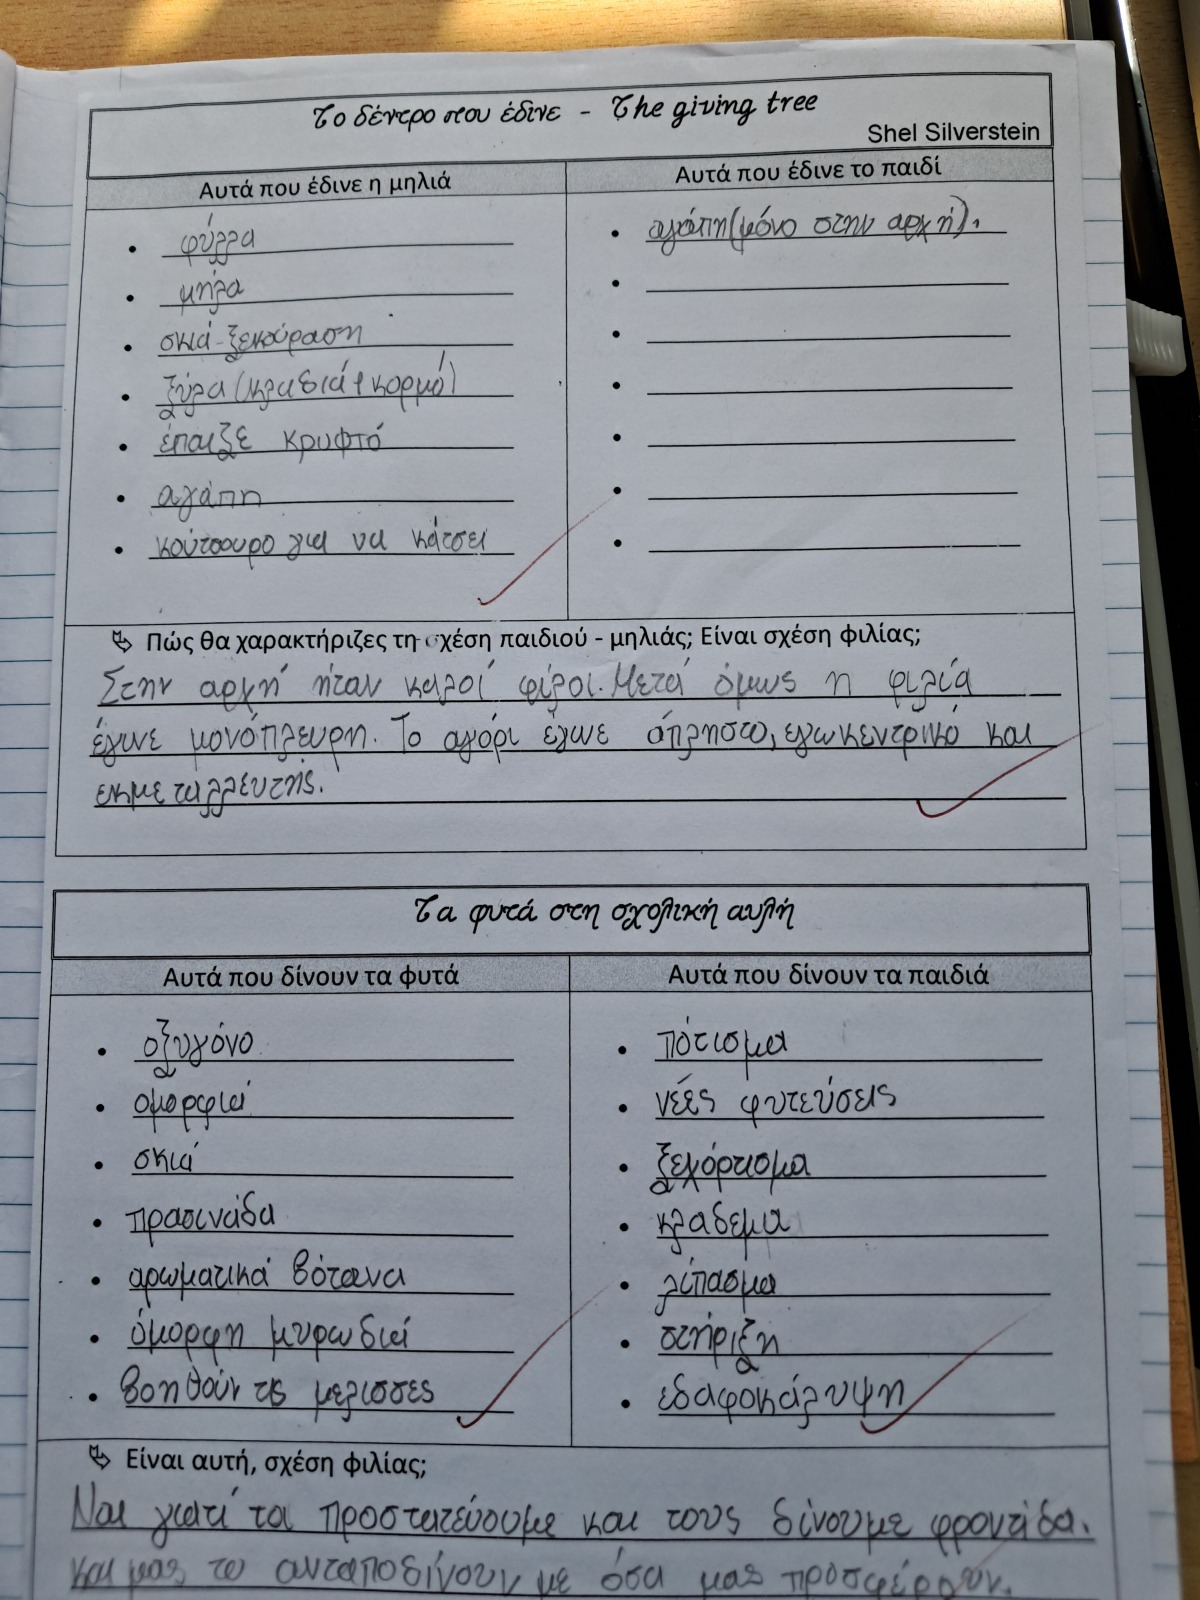 Το δέντρο που έδινε - The giving tree
Shel Silverstein
Αυτά που έδινε η μηλιά
φύλλα
μήλα
σκιά-ξεκούραση
ξύλα (κλαδιά + κορμό)
έπαιξε κρυφτό
αγάπη
κούτσουρο για να κάτσει
Αυτά που έδινε το παιδί
αγάπη (μόνο στην αρχή).
Πώς θα χαρακτήριζες τη σχέση παιδιού - μηλιάς; Είναι σχέση φιλίας;
Στην αρχή ήταν καλοί φίλοι. Μετά όμως η φιλία
έγινε μονόπλευρη. Το αγόρι έγινε άπληστο, εγωκεντρικό και
εκμεταλλευτής.
Τα φυτά στη σχολική αυλή
Αυτά που δίνουν τα φυτά
οξυγόνο
ομορφιά
σκιά
πρασινάδα
αρωματικά βότανα
όμορφη μυρωδιά
βοηθούν τις μέλισσες
Αυτά που δίνουν τα παιδιά
πότισμα
νέες φυτεύσεις
ξεχόρτισμα
κλάδεμα
λίπασμα
στήριξη
εδαφοκάλυψη
Είναι αυτή, σχέση φιλίας;
Ναι γιατί τα προστατεύουμε και τους δίνουμε φροντίδα.
και μας το ανταποδίνουν με όσα μας προσφέρουν.